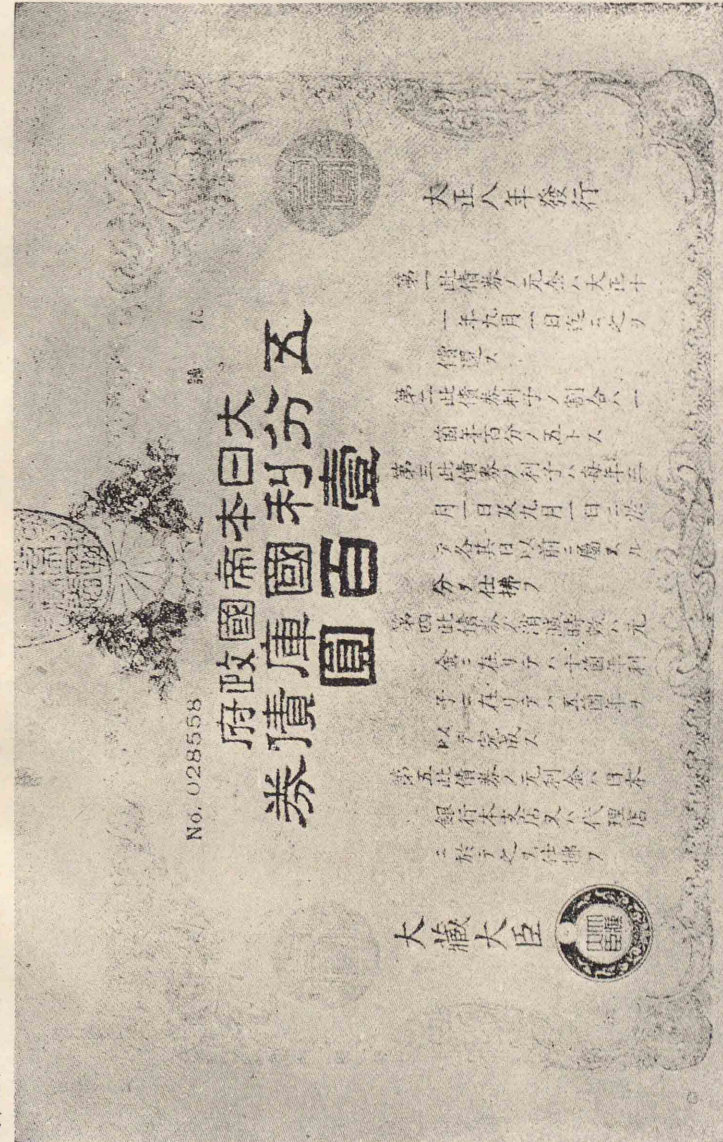 大日本帝國政府
五分利國庫債券
壹百圓
No. 028558
大正八年發行
第一此債券ノ元金ハ大正十
一年九月一日迄ニ之ヲ
償還ス
第二此債券利子ノ割合ハ一
箇年百分ノ五トス
第三此債券ノ利子ハ每年三
月一日及九月一日ニ於
テ各其日以前ニ屬スル
分ヲ仕拂フ
第四此債券ノ消滅時效ハ元
金ニ在リテハ十箇年利
子ニ在リテハ五箇年ヲ
以テ完成ス
第五此債券ノ元利金ハ日本
銀行本支店又ハ代理店
ニ於テ之ヲ仕拂フ
大藏大臣